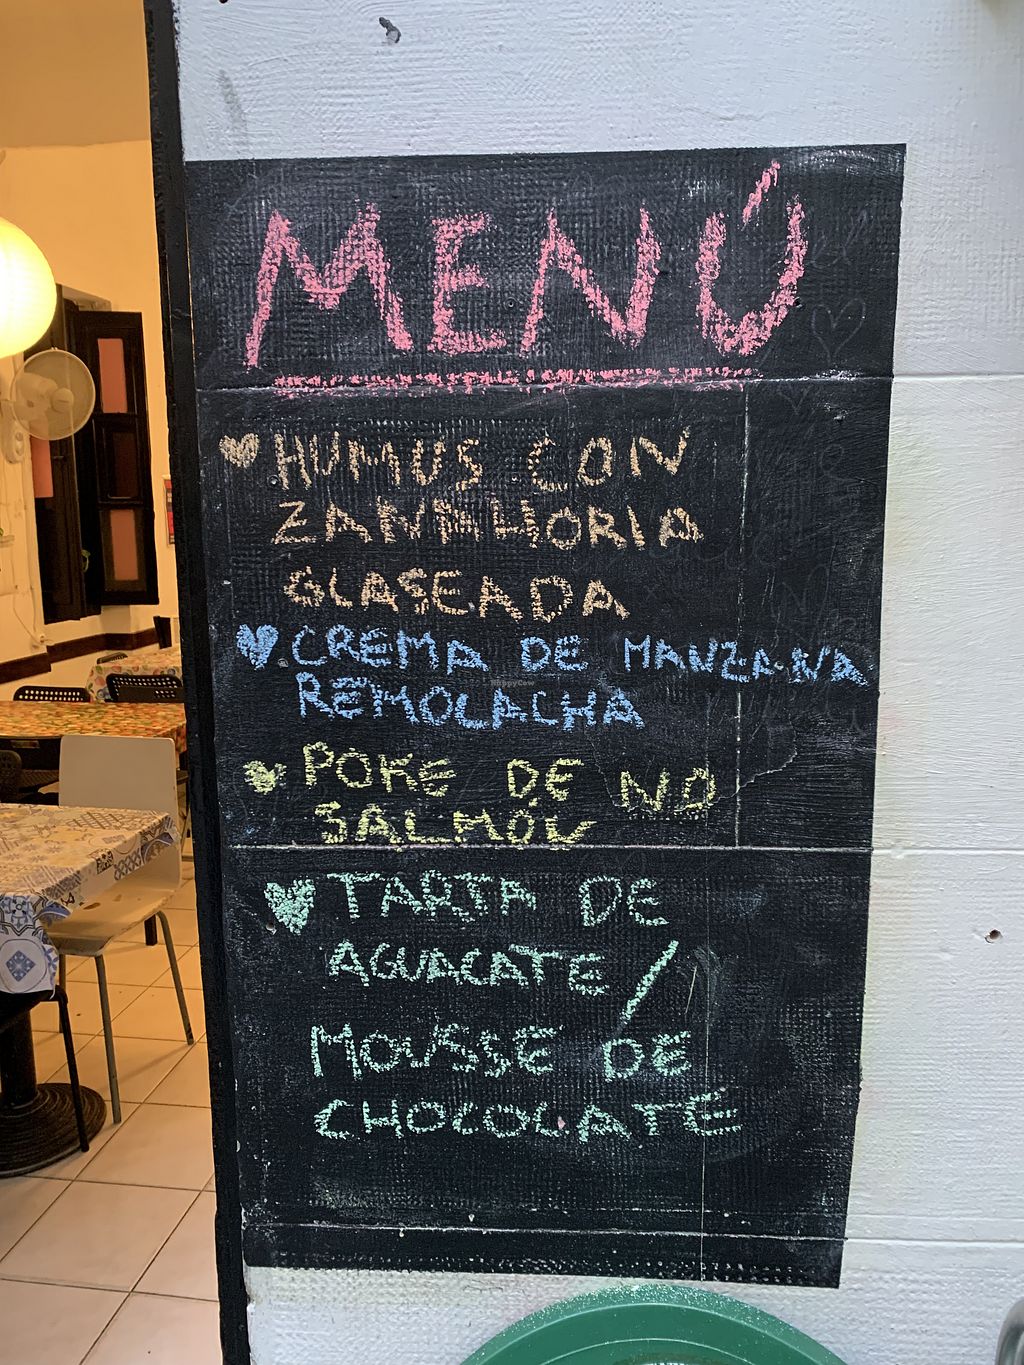 MENÚ
HUMUS CON
ZANAHORIA
GLASEADA
CREMA DE MANZANA
REMOLACHA
POKE DE NO
SALMÓN
TARTA DE
AGUACATE /
MOUSSE DE
CHOCOLATE